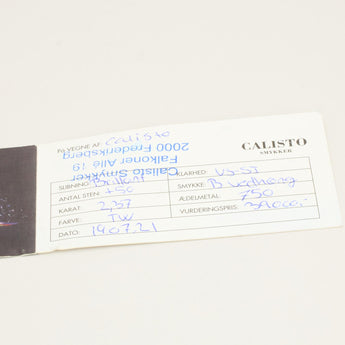 PÅ VEGNE AF Calisto
CALISTO
SMYKKER
2000 Frederiksberg
Falkoner Alle 19
Calisto Smykker
SLIBNING: Brillant
KLARHED: VS-SI
ANTAL STEN: +50
SMYKKE: B vedhæng
KARAT: 2,37
ÆDELMETAL: 750
FARVE: TW
VURDERINGSPRIS:
DATO: 19.07.21